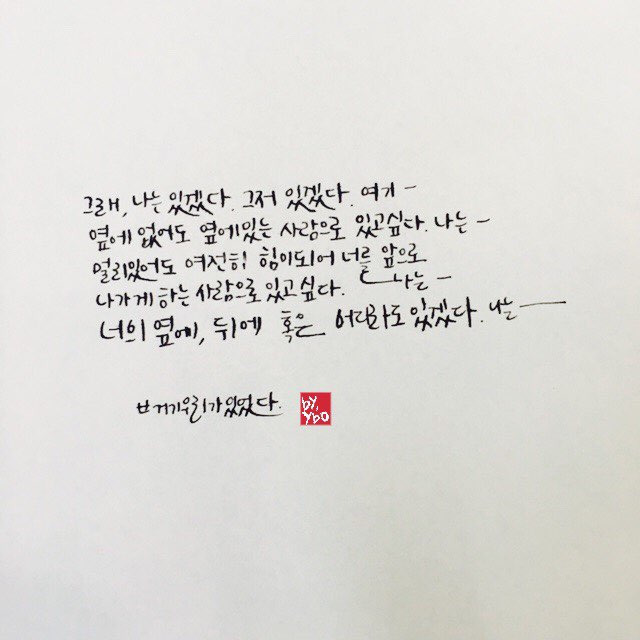 그래, 나는 있겠다. 그저 있겠다. 여기 -
옆에 없어도 옆에있는 사람으로 있고싶다. 나는 -
멀리있어도 여전히 힘이되어 너를 앞으로
나가게 하는 사람으로 있고 싶다. 나는 -
너의 옆에, 뒤에 혹은 어디라도 있겠다. 나는 —
거기우리가있었다.
by.
ybo